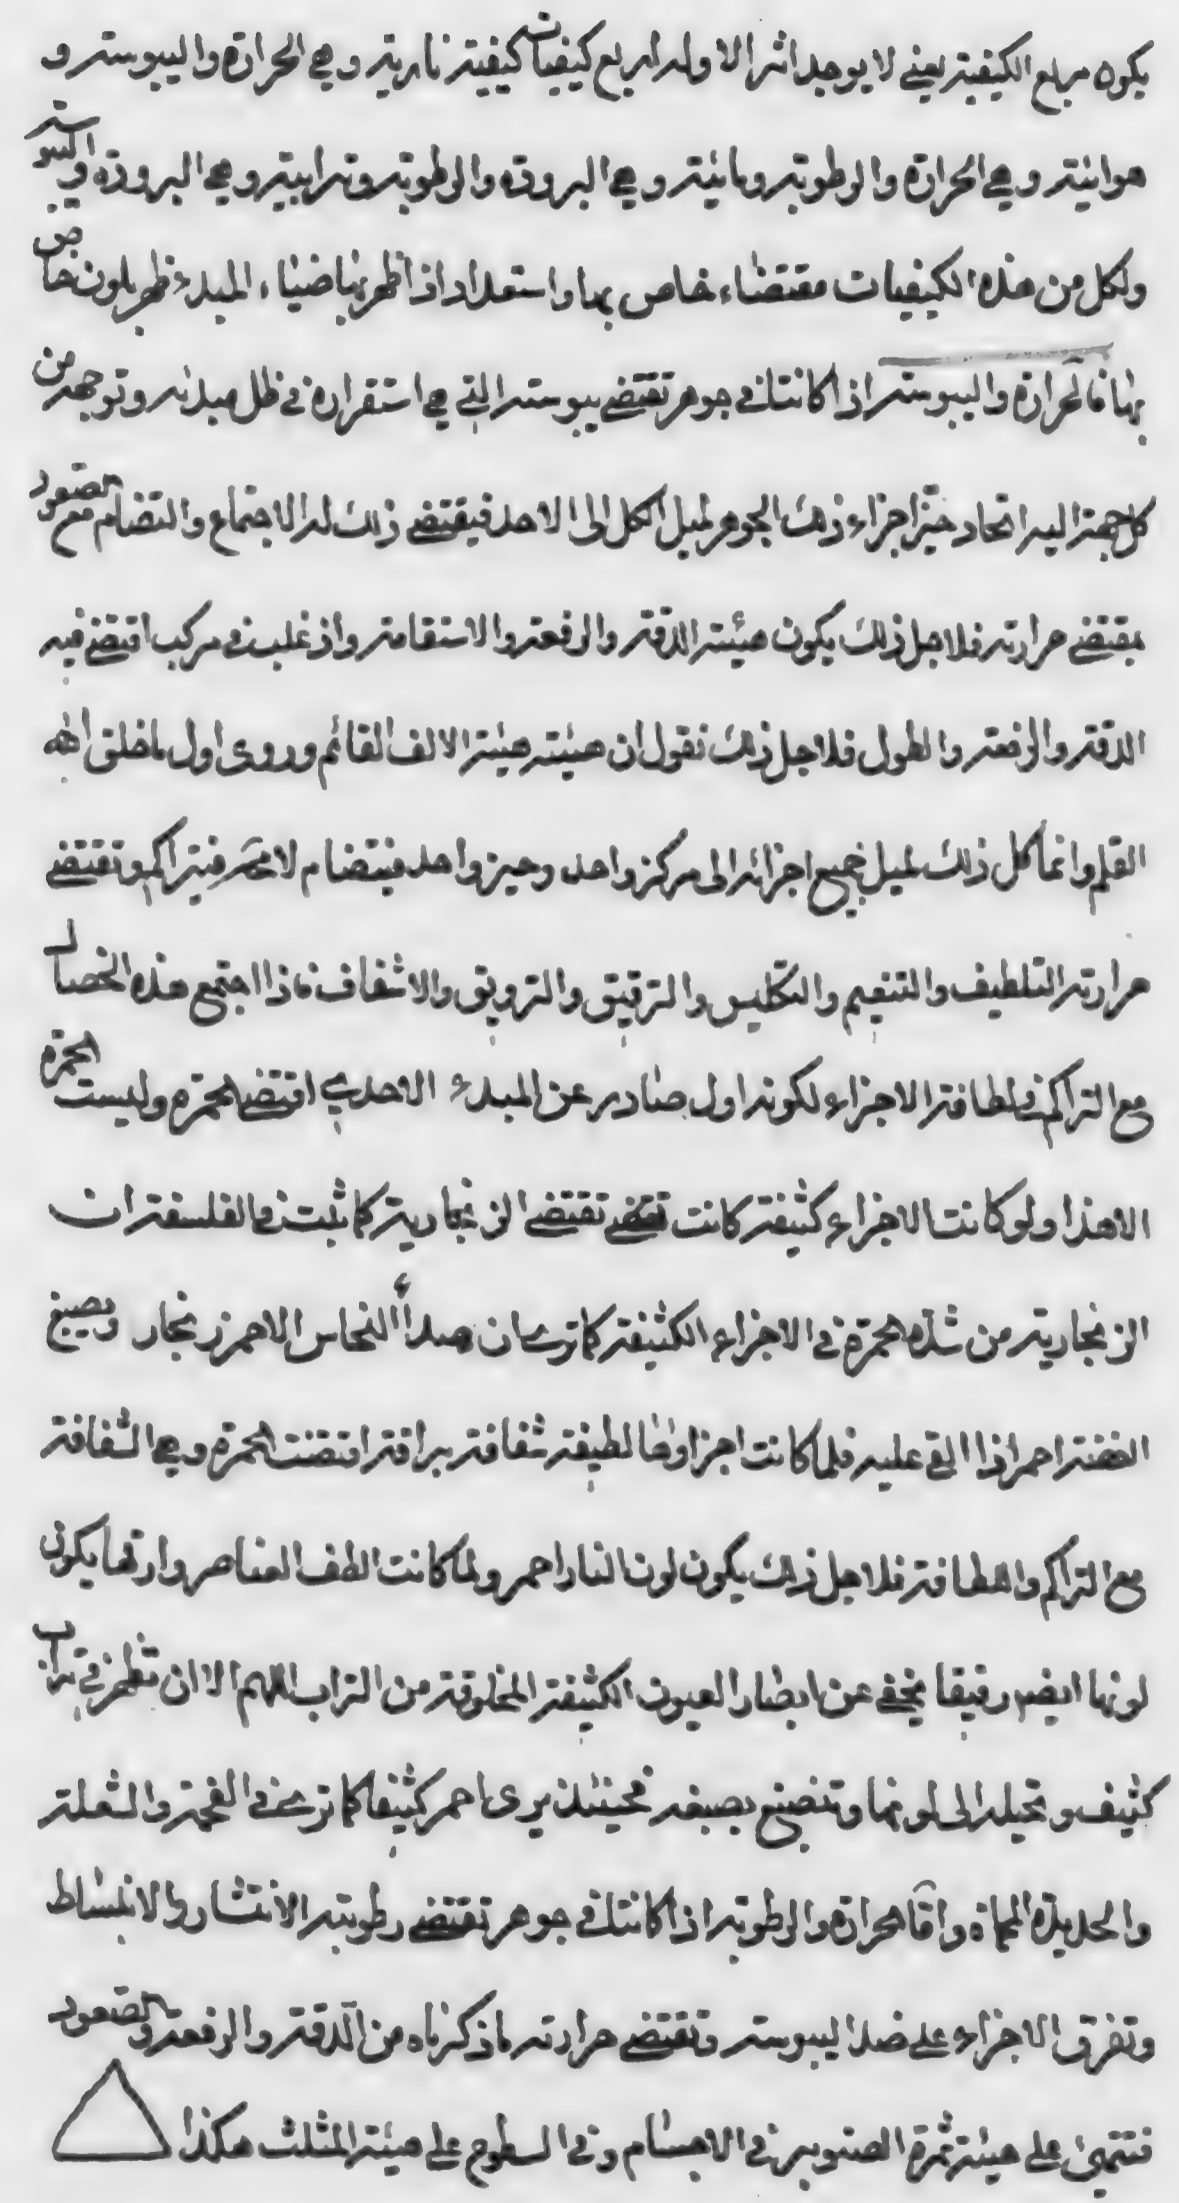 يكون مربع الكيفية يعني لا يوجد اثر الا وله اربع كيفيات كيفية نارية وهي الحرارة واليبوسة و
هوائية وهي الحرارة والرطوبة ومائية وهي البرودة والرطوبة وترابية وهي البرودة واليبوسة
ولكل من هذه الكيفيات مقتضاء خاص بها واستعداد اذا ظهر بها ضياء المبدء ظهر بلون خاص
بها فالحرارة واليبوسة اذا كانتا في جوهر تقتضي يبوسته التي هي استقراره في ظل مبدئه وتوجهه من
كل جهة اليه اتحاد حيز اجزاء ذلك الجوهر لميل الكل الى الاحد فيقتضي ذلك له الاجتماع والتضام مع الصعود
بمقتضي حرارته فلاجل ذلك يكون هيئته الدقة والرفعة والاستقامة واذ غلب في مركب اقتضي فيه
الدقة والرفعة والطول فلاجل ذلك نقول ان هيئته هيئة الالف القائم وروي اول ما خلق الله
القلم وانما كل ذلك لميل جميع اجزائه الى مركز واحد وحيز واحد فيتضام لا محة فيتراكم وتقتضي
حرارته التلطيف والتنعيم والتكليس والترقيق والترويق والاشفاف فاذا اجتمع هذه الخصال
مع التراكم في لطافة الاجزاء لكونه اول صادر عن المبدء الاحدي اقتضي الحمرة وليست الحمرة
الا هذا ولو كانت الاجزاء كثيفة كانت تقتضي تقتضي الزنجارية كما ثبت في الفلسفة ان
الزنجارية من شدة الحمرة في الاجزاء الكثيفة كما تري ان صدأ النحاس الاحمر زنجار ويصبغ
الفضة احمر اذا القي عليه فلما كانت اجزاؤها لطيفة شفافة براقة اقتضت الحمرة وهي الشفافة
مع التراكم واللطافة فلاجل ذلك يكون لون النار احمر ولما كانت الطف العناصر وارقها يكون
لونها ايضا رقيقا يخفي عن ابصار العيون الكثيفة المخلوقة من التراب اللهم الا ان تظهر في تراب
كثيف وتحيله الى لونها وتنصبغ بصبغه فحينئذ يرى احمر كثيفا كما تري في الفحمة والشعلة
والحديدة المحماة واما الحرارة والرطوبة اذا كانتا في جوهر تقتضي رطوبته الانتشار والانبساط
وتفرق الاجزاء على ضد اليبوسة وتقتضي حرارته ما ذكرناه من الدقة والرفعة والصعود
فتنتهي على هيئة ثمرة الصنوبر في الاجسام وفي السطوح على هيئة المثلث هكذا